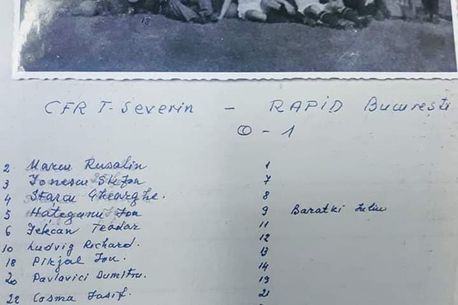 18
CFR T-Severin - RAPID București
0-1
2 Marcu Rusalin 1
3 Ionescu Stefan 7
4 Gheorghe. 8
5 Hateganu Ion 9 Baratki Iuliu
6 Teodor 11
10 Ludvig Richard. 12
18 Ion. 13
20 Pavlovici Dumitru. 14
22 Cosma Iosif. 21